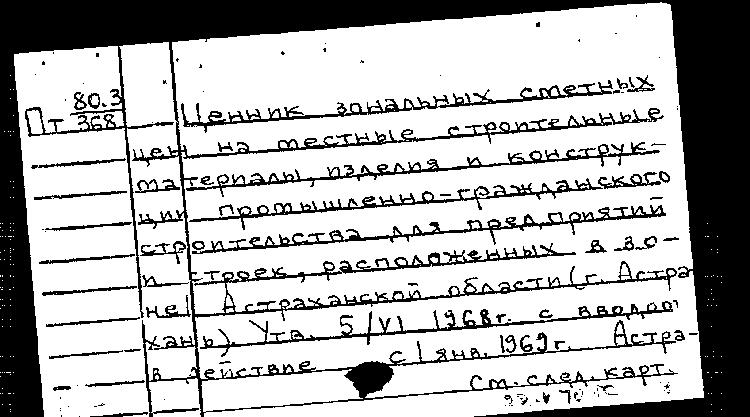 Пт 80.3/368
Ценник зональных сметных
цен на местные строительные
материалы, изделия и конструк-
ции промышленно-гражданского
строительства для предприятий
и строек, расположенных в зо-
не I Астраханской области (г. Астра-
хань). Утв. 5/VI 1968г. с вводом
в действие с 1 янв. 1969г. Астра-
См. след. карт.